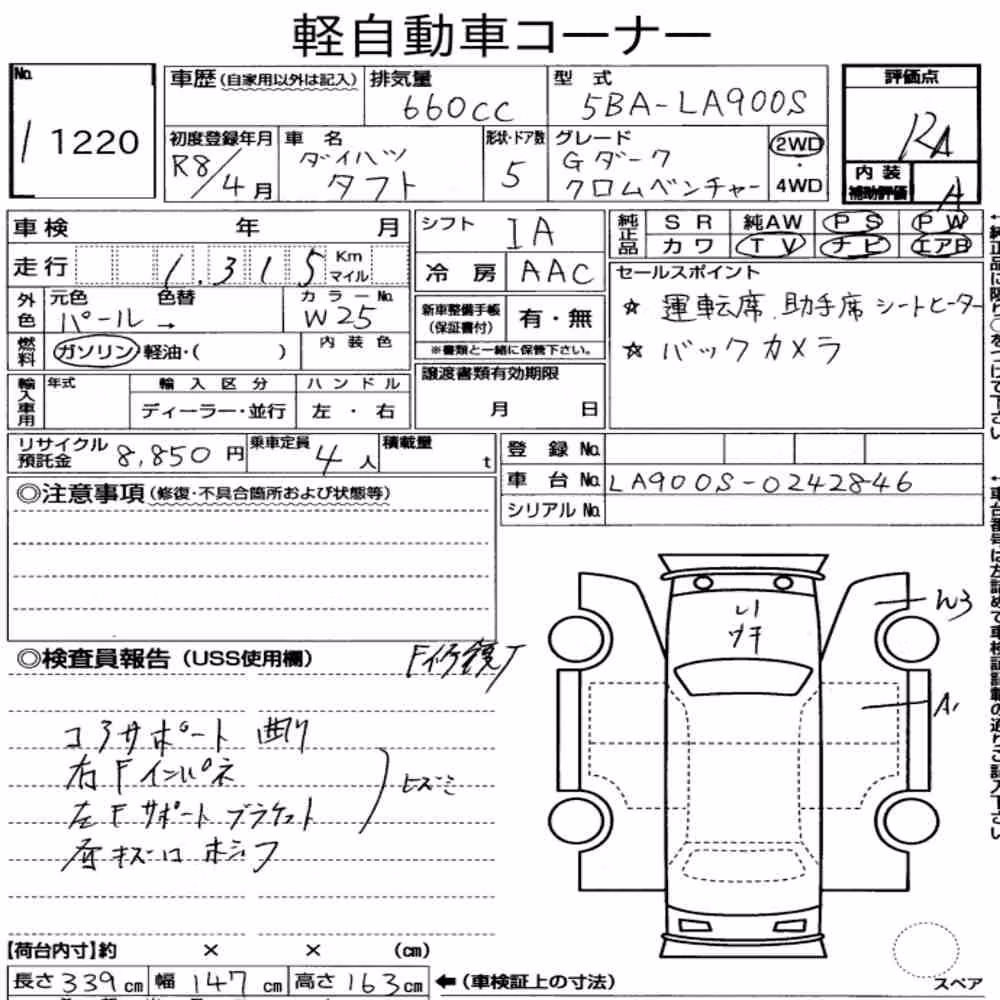 軽自動車コーナー
No.
1 1220
車歴 (自家用以外は記入)
排気量
660cc
型式
5BA-LA900S
評価点
RA
初度登録年月
R8/4月
車名
ダイハツ
タフト
形状・ドア数
5
グレード
Gダーク
クロムベンチャー
2WD
・
4WD
内装
補助評価
A
車検 年 月
シフト
IA
純正品
SR 純AW PS PW
カワ TV ナビ エアB
走行 1,315 Km マイル
冷房 AAC
セールスポイント
☆ 運転席.助手席 シートヒーター
☆ バックカメラ
外色
元色 色替
パール →
カラーNo.
W25
新車整備手帳
(保証書付)
有・無
※書類と一緒に保管下さい。
燃料
ガソリン・軽油・( )
内装色
輸入車用
年式
輸入区分
ディーラー・並行
ハンドル
左・右
譲渡書類有効期限
月 日
リサイクル
預託金
8,850円
乗車定員
4人
積載量
t
登録No.
車台No. LA900S-0242846
シリアルNo.
◎注意事項 (修復・不具合箇所および状態等)
◎検査員報告 (USS使用欄)
コアサポート 曲り
右Fインパネ
左Fサポートブラケット
ヒズミ
W3
A1
【荷台内寸】約 × × (cm)
長さ339cm 幅147cm 高さ163cm
←(車検証上の寸法)
スペア